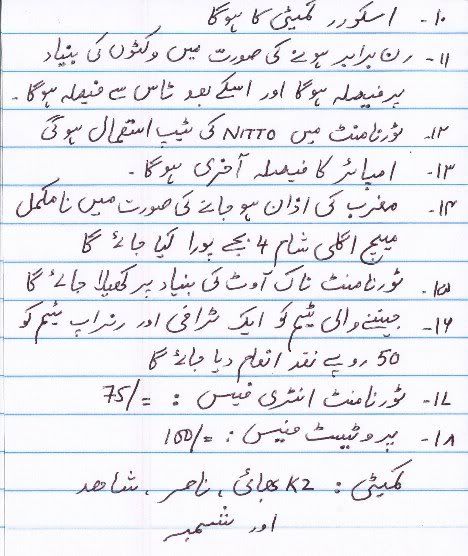 ۱۰۔ اسکورر کمیٹی کا ہوگا
۱۱۔ رن برابر ہونے کی صورت میں وکٹوں کی بنیاد
پر فیصلہ ہوگا اور اسکے بعد ٹاس سے فیصلہ ہوگا۔
۱۲۔ ٹورنامنٹ میں NITTO کی ٹیپ استعمال ہوگی
۱۳۔ امپائر کا فیصلہ آخری ہوگا۔
۱۴۔ مغرب کی اذان ہو جانے کی صورت میں نامکمل
میچ اگلی شام 4 بجے پورا کیا جائے گا
۱۵۔ ٹورنامنٹ ناک آوٹ کی بنیاد پر کھیلا جائے گا
۱۶۔ جیتنے والی ٹیم کو ایک ٹرافی اور رنراپ ٹیم کو
50 روپے نقد انعام دیا جائے گا
۱۷۔ ٹورنامنٹ انٹری فیس : 75/=
۱۸۔ پروٹیسٹ فیس : 100/=
کمیٹی : K2 بھائی، ناصر، شاھد
اور